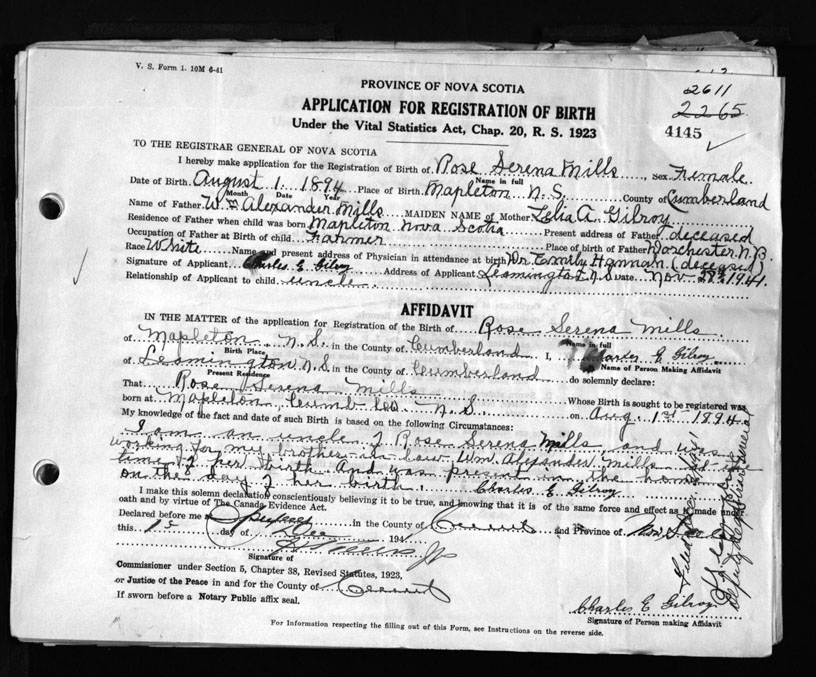 V. S. Form 1. 10M 6-41
PROVINCE OF NOVA SCOTIA
2611
APPLICATION FOR REGISTRATION OF BIRTH
2265
Under the Vital Statistics Act, Chap. 20, R. S. 1923
4145
TO THE REGISTRAR GENERAL OF NOVA SCOTIA
I hereby make application for the Registration of Birth of Rose Serena Mills, Sex Female
Name in full
Date of Birth August 1. 1894 Place of Birth Mapleton N.S. County of Cumberland
Month Date Year
Name of Father Wm Alexander Mills MAIDEN NAME of Mother Lelia A. Gilroy
Residence of Father when child was born Mapleton Nova Scotia Present address of Father deceased
Occupation of Father at Birth of child Farmer Place of birth of Father Dorchester N.B.
Race White Name and present address of Physician in attendance at birth Dr. Emily Hannan (deceased)
Signature of Applicant Charles E Gilroy Address of Applicant Leamington N.S. Date Nov. 1941
Relationship of Applicant to child uncle
AFFIDAVIT
IN THE MATTER of the application for Registration of the Birth of Rose Serena Mills
Name in full
of Mapleton, N.S. in the County of Cumberland I, Charles E Gilroy
Birth Place
Name of Person Making Affidavit
of Leamington N.S. in the County of Cumberland do solemnly declare:
Present Residence
That Rose Serena Mills Whose Birth is sought to be registered was
born at Mapleton, Cumb N.S. on Aug. 1st 1894
My knowledge of the fact and date of such Birth is based on the following Circumstances:
I am an uncle of Rose Serena Mills and was
working for my brother-in-law Wm Alexander Mills at
time of her birth. And was present in the home
on the day of her birth. Charles E Gilroy
I make this solemn declaration conscientiously believing it to be true, and knowing that it is of same force and effect as if made under
oath and by virtue of The Canada Evidence Act.
Declared before me in the County of and Province of Nova
this day of 1941
Signature of
Commissioner under Section 5, Chapter 38, Revised Statutes, 1923,
or Justice of the Peace in and for the County of
If sworn before a Notary Public affix seal.
Charles E Gilroy
Signature of Person making Affidavit
For Information respecting the filling out of this Form, see Instructions on the reverse side.
Filed
Deputy Registrar General